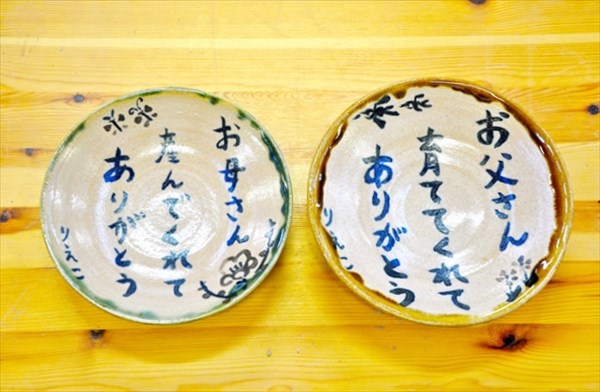 お母さん
産んでくれて
ありがとう
りえこ
お父さん
育ててくれて
ありがとう
りえこ